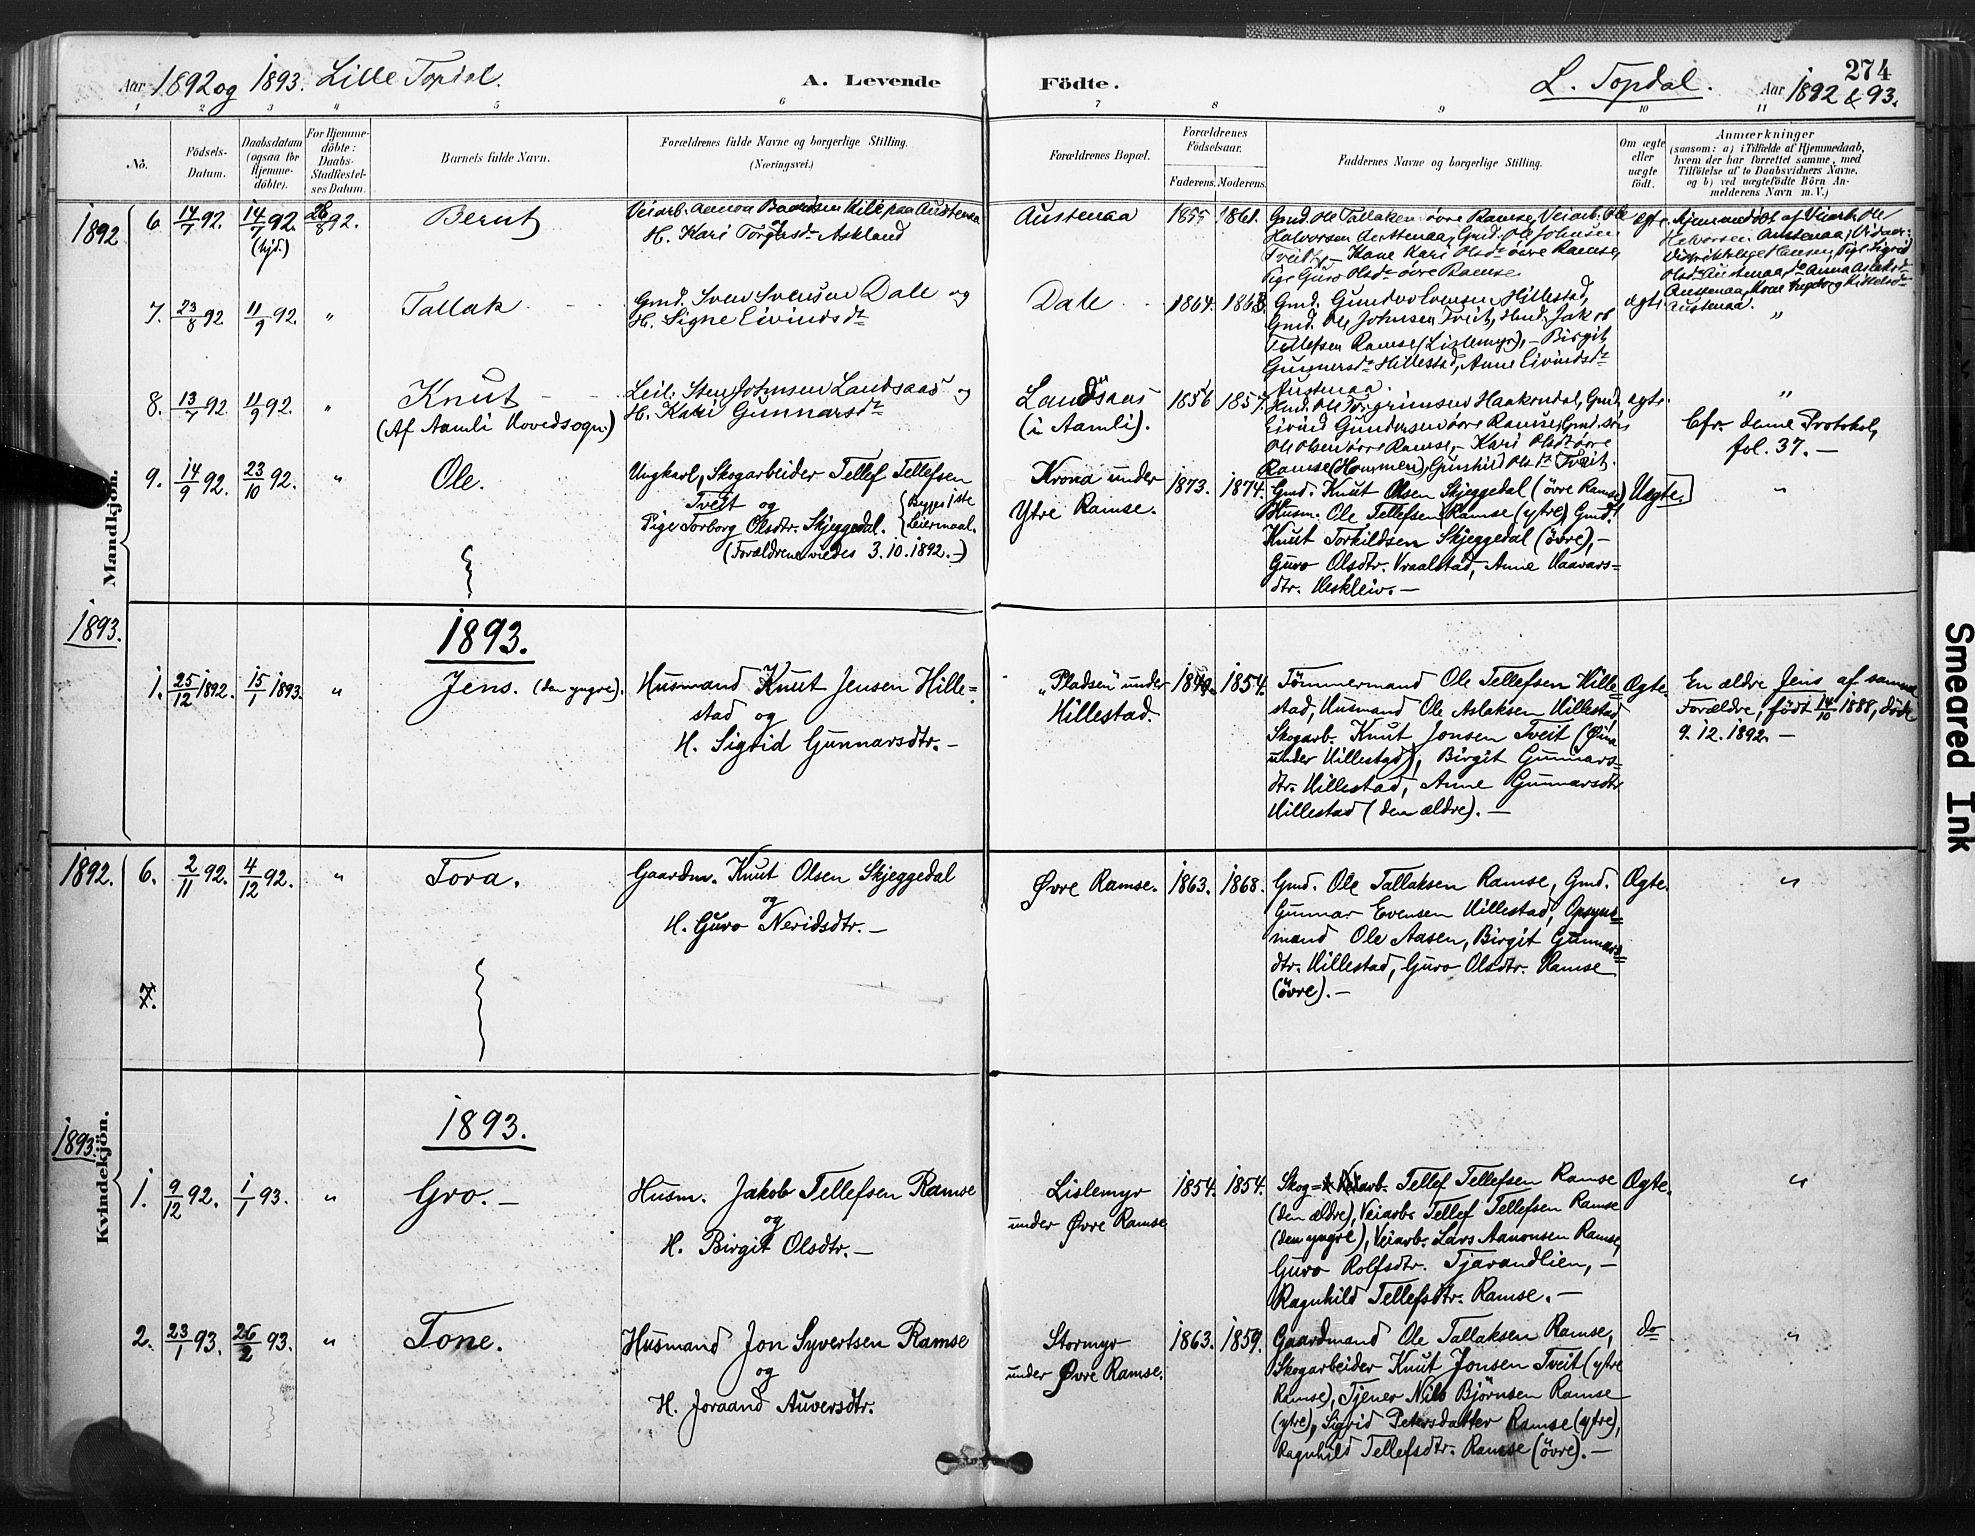 Aar 1892 og 1893. Lille Topdal. A. Levende Födte. L. Topdal. Aar 1892 & 93. 274
1 2 3 4 5 6 7 8 9 10 11
No. Födsels-Datum. Daabsdatum (ogsaa for Hjemme-döbte). For Hjemme-döbte: Daabs-Stadfæstel-ses Datum. Barnets fulde Navn. Forældrenes fulde Navne og borgerlige Stilling. (Næringsvei.) Forældrenes Bopæl. Forældrenes Födselsaar. Faderens. Moderens. Faddernes Navne og borgerlige Stilling. Om ægte eller uægte födt. Anmærkninger (saasom: a) i Tilfælde af Hjemmedaab, hvem der har forrettet samme, med Tilföielse af to Daabsvidners Navne, og b) ved uægtefödte Börn An-melderens Navn m. V.)
Mandkjön.
1892
6. 14/7 92. 14/7 92. (hjd.) 28/8 92. Bernt
Veiarb. Aanon
H. Kari Askland
Austenaa 1855 1861.
Gmd. Ole Tallaksen övre Ramse, Veiarb. Ole
Halvorsen Austenaa, Gmd. Ole Johnsen
Tveit, – Kone Kari Olsdr övre Ramse,
Pige Guro Olsdr övre Ramse.
ægte Hjemmedöbt af Veiarb. Ole
Halvorsen Austenaa,
Pige Sigrid
Olsdr Austenaa, Anna Aslaksdr
Austenaa, Kone Ingeborg Kittelsdr
Austenaa.
7. 23/8 92 11/9 92. " Tallak
Gmd. Sven Svensen Dale og
H. Signe Eivindsdr
Dale 1864. 1863.
Gmd. Gunder Evensen Hillestad,
Gmd. Ole Johnsen Tveit, Husmd. Jakob
Tellefsen Ramse (Lislemyr), – Birgit
Gunnarsdr Hillestad, Anne Eivindsdr
Austenaa.
ægte "
8. 13/7 92 11/9 92. " Knut
(Af Aamli Hovedsogn.)
Leil. Sten Johnsen Landsaas og
H. Kari Gunnarsdr
Landsaas
(i Aamli).
1856 1857.
Husmd. Ole Torgrimsen Haakendal, Gmd.
Eivind Gundersen övre Ramse, Gmd. søn
Ole Olsen övre Ramse, – Kari Olsdr övre
Ramse (Hommen), Gunhild Olsdr Tveit.
ægte "
Cfr. denne Protokol,
fol. 37. –
9. 14/9 92. 23/10 92. " Ole.
Ungkarl, Skogarbeider Tellef Tellefsen
Tveit og
Pige Torborg Olsdtr. Skjeggedal. { Begges 1ste Leiermaal.
(Forældrene viedes 3.10.1892. –)
Krona under
Ytre Ramse.
1873. 1874.
Gmd. Knut Olsen Skjeggedal (övre Ramse)
Husm. Ole Tellefsen Ramse (ytre), Gmd.
Knut Torkildsen Skjeggedal (övre), –
Guro Olsdtr. Vraalstad, Anne Haavars=
dtr. Heskleiv. –
Uægte "
1893.
1893.
1. 25/12 1892. 15/1 1893. " Jens. (den yngre).
Husmand Knut Jensen Hille=
stad og
H. Sigrid Gunnarsdtr. –
"Pladsen" under
Hillestad.
1854.
Tömmermand Ole Tellefsen Hille=
stad, Husmand Ole Aslaksen Hillestad
Skogarb. Knut Jonsen Tveit (
under Hillestad), Birgit Gunnars=
dtr. Hillestad, Anne Gunnarsdtr
Hillestad (den ældre). –
Ægte.
En ældre Jens af samme
Forældre, födt 14/10 1888, döde
9.12.1892. –
Kvindekjön.
1892.
6. 2/11 92. 4/12 92. " Tora.
Gaardm. Knut Olsen Skjeggedal
og
H. Guro Neridsdtr. –
Øvre Ramse. 1863. 1868.
Gmd. Ole Tallaksen Ramse, Gmd.
Gunnar Evensen Hillestad, Opsyns=
mand Ole Aasen, Birgit Gunnars=
dtr. Hillestad, Guro Olsdtr. Ramse
(övre). –
Ægte. "
7.
1893.
1893.
1. 9/12 92. 1/1 93. " Gro. –
Husm. Jakob Tellefsen Ramse
og
H. Birgit Olsdtr. –
Lislemyr
under Øvre Ramse
1854. 1854.
Skog= Veiarb. Tellef Tellefsen Ramse
(den ældre), Veiarb. Tellef Tellefsen Ramse
(den yngre), Veiarb. Lars Aanonsen Ramse,
Guro Rolfsdtr. Tjarandlien, –
Ragnhild Tellefsdtr. Ramse. –
Ægte. "
2. 23/1 93. 26/2 93. " Tone.
Husmand Jon Syvertsen Ramse
og
H. Joraand Auversdtr.
Stormyr
under Øvre Ramse.
1863. 1859.
Gaardmand Ole Tallaksen Ramse,
Skogarbeider Knut Jonsen Tveit (ytre
Ramse), Tjener Nils Björnsen Ramse
(ytre), Sigrid Petersdatter Ramse (ytre),
Ragnhild Tellefsdtr. Ramse (övre). –
do "
Smeared Ink